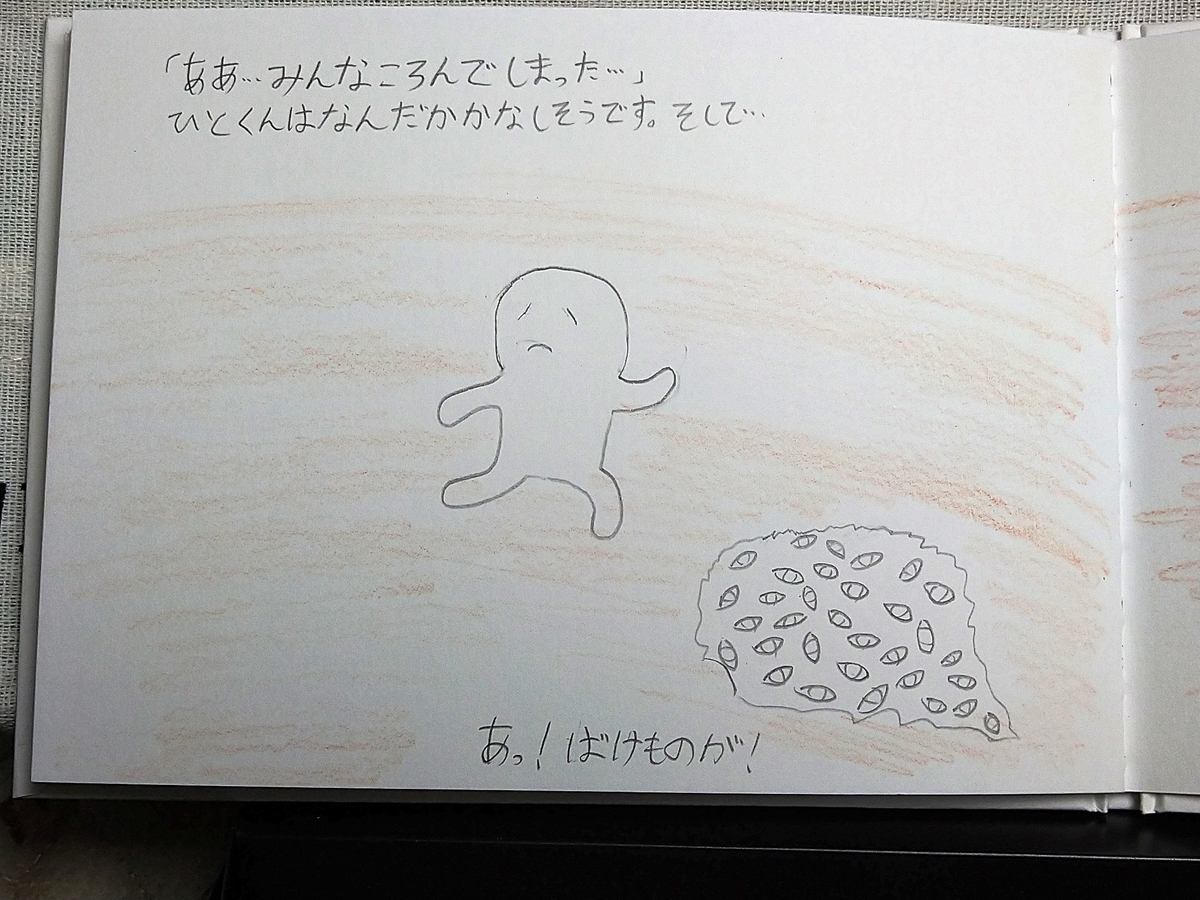 「ああ…みんなころんでしまった…」
ひとくんはなんだかかなしそうです。そして…
あっ！ばけものが！